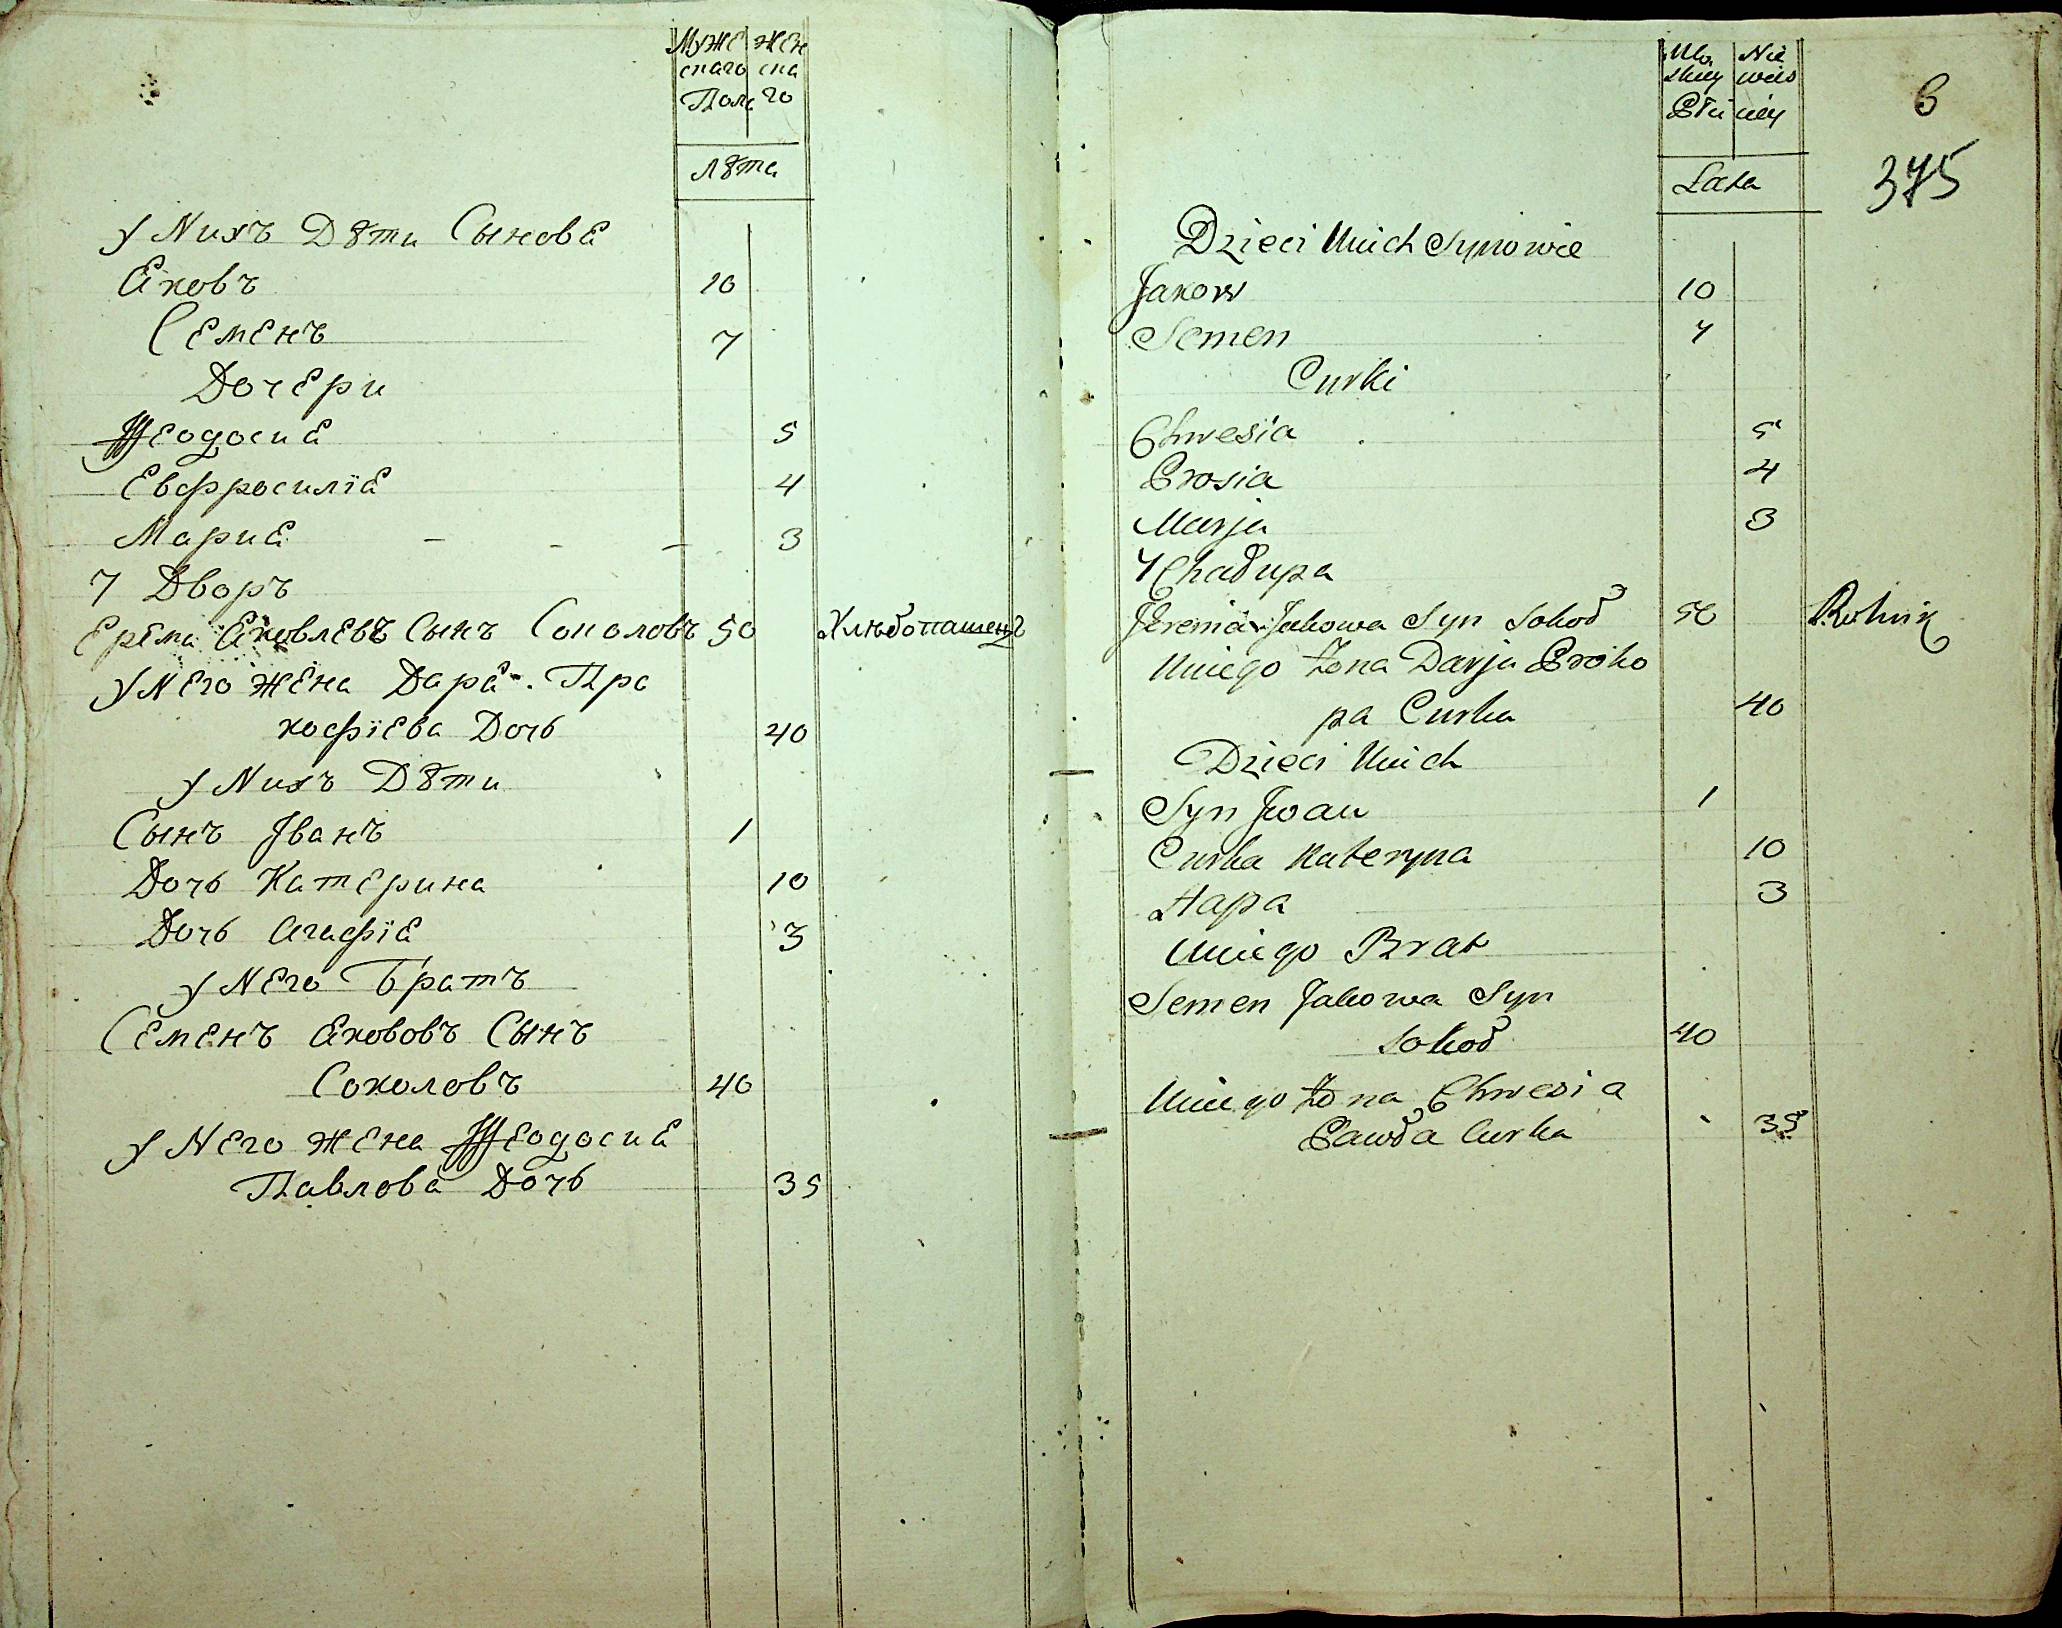 Муже жен
скаго ска
Пола го
Лѣта
У Nихъ Дѣти Сынове
Яковъ 10
Семенъ 7
Дочери
Феодосия 5
Евфросилїя 4
Мария - - - 3
7 Дворъ
Ерема Яковлевъ Сынъ Соколовъ 50 Хлѣбопашецъ
У Nего жена Даря Про
кофїева Дочь 40
У Nихъ Дѣти
Сынъ Іванъ 1
Дочь Катерина 10
Дочь Агафїя 3
У Nего Братъ
Семенъ Якововъ Сынъ
Соколовъ 40
У Nего жена Феодосия
Павлова Дочь 35
Mę Nie
skiey wieś
Płci ciey
Lata
6
375
Dzieci Unich Synowie
Jakow 10
Semen 7
Curki
Chwesia 5
Prosia 4
Marja 3
7 Chałupa
Jeremia Jakowa Syn Sokoł 50 Rolnik
Uniego Żona Darja Proko
pa Curka 40
Dzieci Unich
Syn Jwan 1
Curka Kateryna 10
Hapa 3
Uniego Brat
Semen Jakowa Syn
Sokoł 40
Uniego Żona Chwesia
Pawła Curka 35